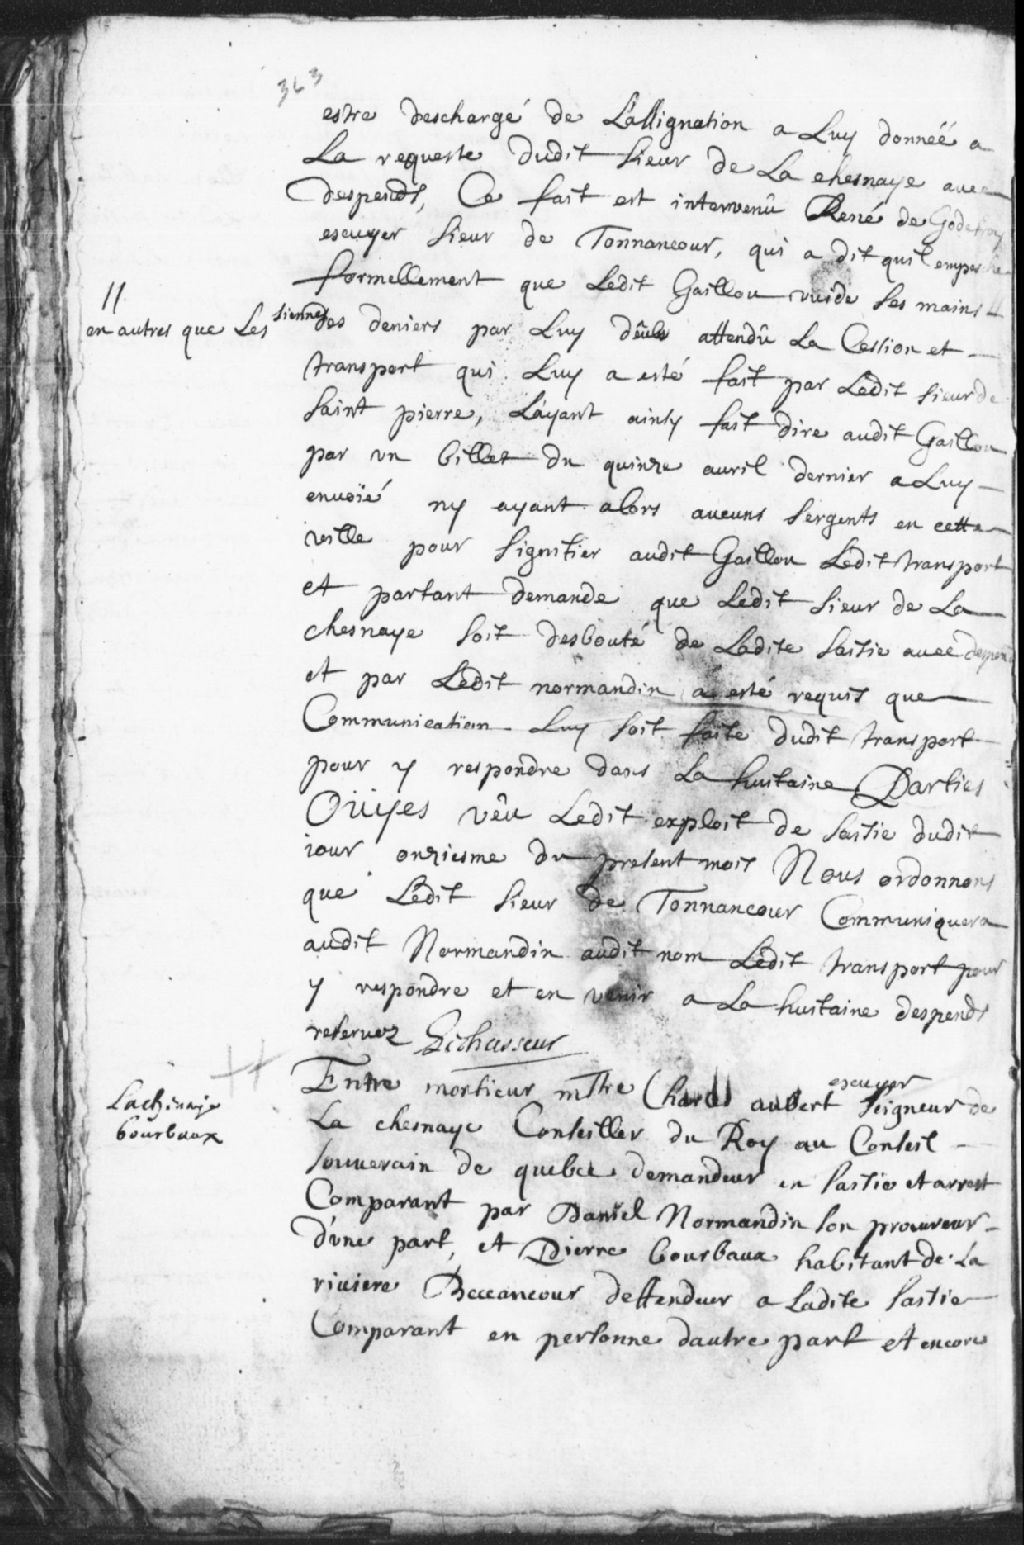 363
estre deschargé de L'assignation a Luy donnéé a
La requeste dudit sieur de La chesnaye avec
despends, Ce fait est intervenû René de Godefroy
escuyer sieur de Tonnancour, qui a dit quil empesche
formellement que Ledit Gaillou vuide ses mains //
// en autres que Les siennes
des deniers par Luy dêubs attendû La Cession et
transport qui Luy a esté fait par Ledit sieur de
saint pierre, L'ayant ainsy fait dire audit Gaillou
par un billet du quinze avril dernier a Luy
envoïé ny ayant alors aucuns sergents en cette
ville pour signifier audit Gaillou Ledit transport
et partant demande que Ledit sieur de La
chesnaye soit desbouté de Ladite saisie avec despend
et par Ledit normandin a esté requis que
Communication Luy soit faite dudit transport
pour y respondre dans La huitaine Parties
Oüyes vêu Ledit exploit de saisie dudit
iour onziesme du present mois Nous ordonnons
que Ledit sieur de Tonnancour Communiquera
audit Normandin audit nom Ledit transport pour
y respondre et en venir a La huitaine despends
reservez
Lachenaje
bourbaux
Entre monsieur mtre Charles aubert escuyer seigneur de
La chesnaye Conseiller du Roy au Conseil
souverain de quebec demandeur en saisie et arrest
Comparant par Daniel Normandin son procureur
d'une part, et Pierre bourbaux habitant de La
riviere Beccancour deffendeur a Ladite saisie
Comparant en personne dautre part et encore